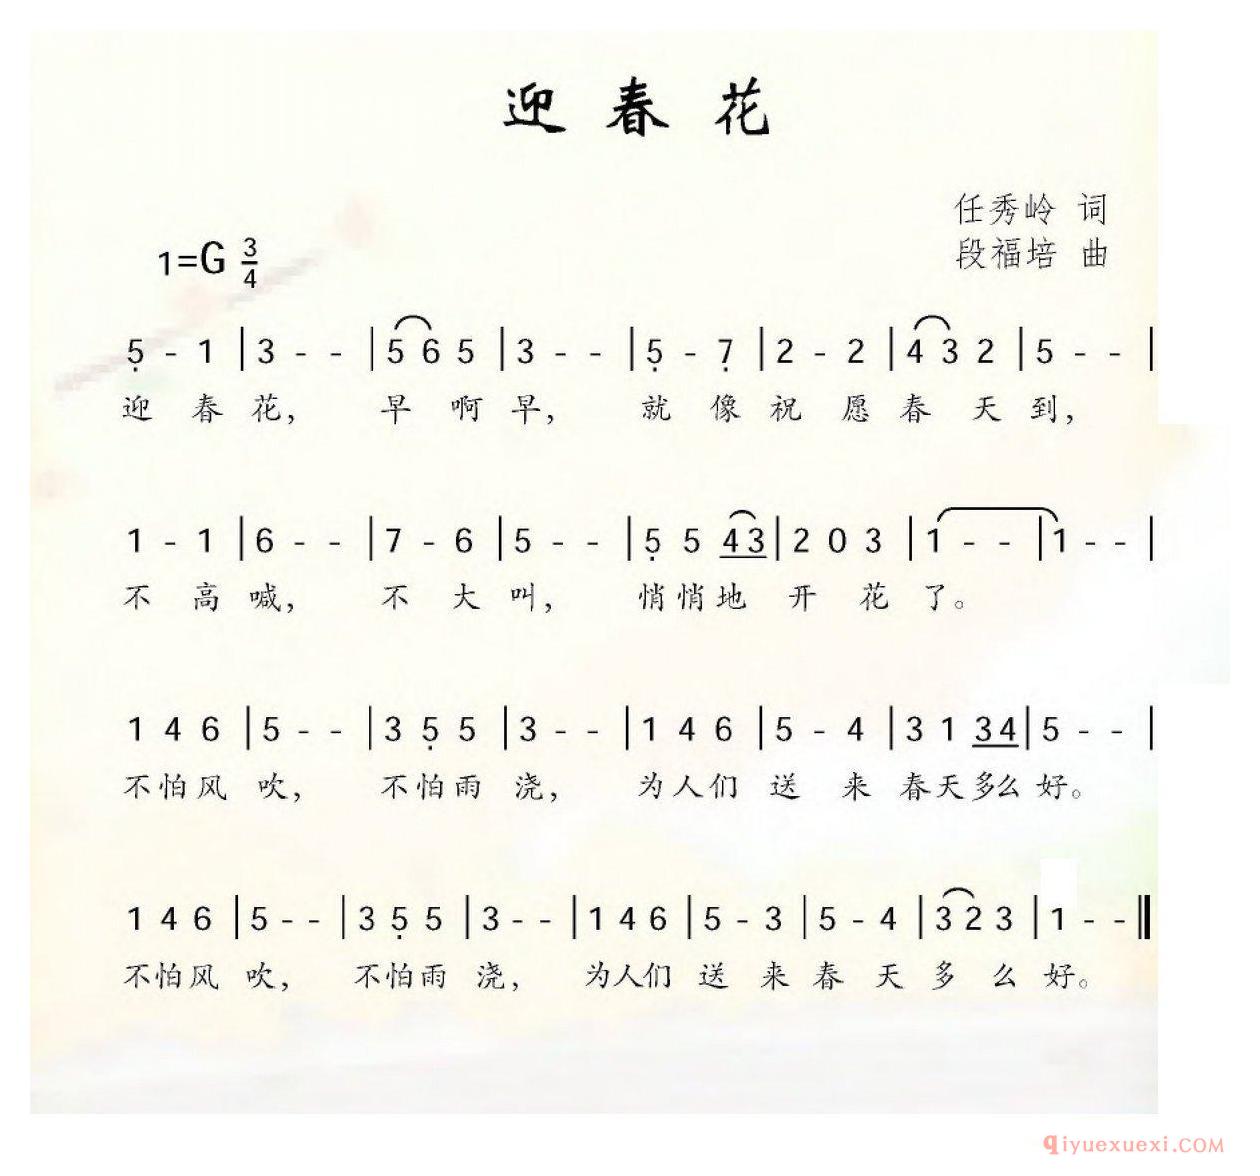 迎春花
任秀岭 词
1=G 3/4
段福培 曲
5̣ - 1 | 3 - - | 5 6 5 | 3 - - | 5̣ - 7̣ | 2 - 2 | 4 3 2 | 5 - - |
迎 春 花, 早 啊 早, 就 像 祝 愿 春 天 到,
1 - 1 | 6 - - | 7 - 6 | 5 - - | 5̣ 5 43 | 2 0 3 | 1 - - | 1 - - |
不 高 喊, 不 大 叫, 悄 悄 地 开 花 了。
1 4 6 | 5 - - | 3 5̣ 5 | 3 - - | 1 4 6 | 5 - 4 | 3 1 34 | 5 - - |
不怕风 吹, 不怕雨 浇, 为人们 送 来 春天多么 好。
1 4 6 | 5 - - | 3 5̣ 5 | 3 - - | 1 4 6 | 5 - 3 | 5 - 4 | 3 2 3 | 1 - - ‖
不怕风 吹, 不怕雨 浇, 为人们 送 来 春 天 多 么 好。
qiyuexuexi.COM